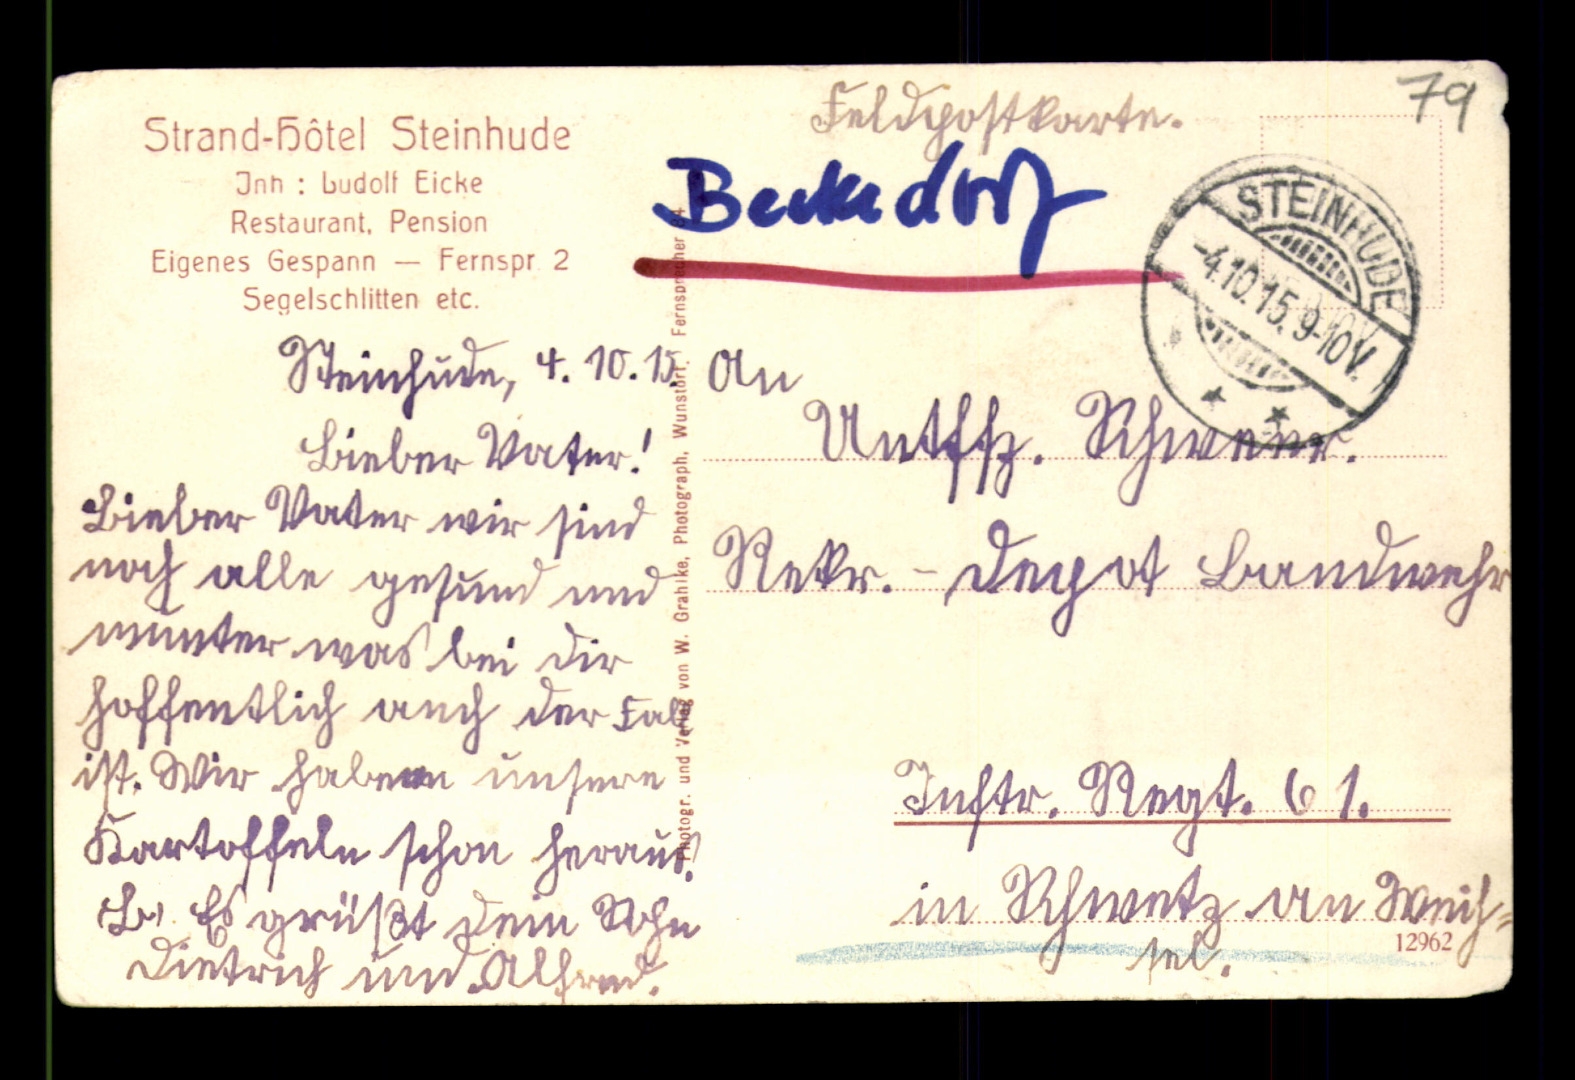 Strand-Hôtel Steinhude
Inh : Ludolf Eicke
Restaurant, Pension
Eigenes Gespann — Fernspr. 2
Segelschlitten etc.
Steinhude, 4. 10. 15.
Lieber Vater!
Lieber Vater wir sind
noch alle gesund und
munter was bei dir
hoffentlich auch der Fall
ist. Wir haben unsere
Kartoffeln schon heraus.
Es grüßt dein Sohn
Dietrich und Alfred.
Photogr. und Verlag von W. Grahlke, Photograph, Wunstorf. Fernsprecher 84
Feldpostkarte.
79
STEINHUDE
-4.10.15. 9-10V.
An
Untffz. Schweer.
Rekr. - Depot Landwehr
Inftr. Regt. 61.
in Schwetz an Weich=
sel.
12962